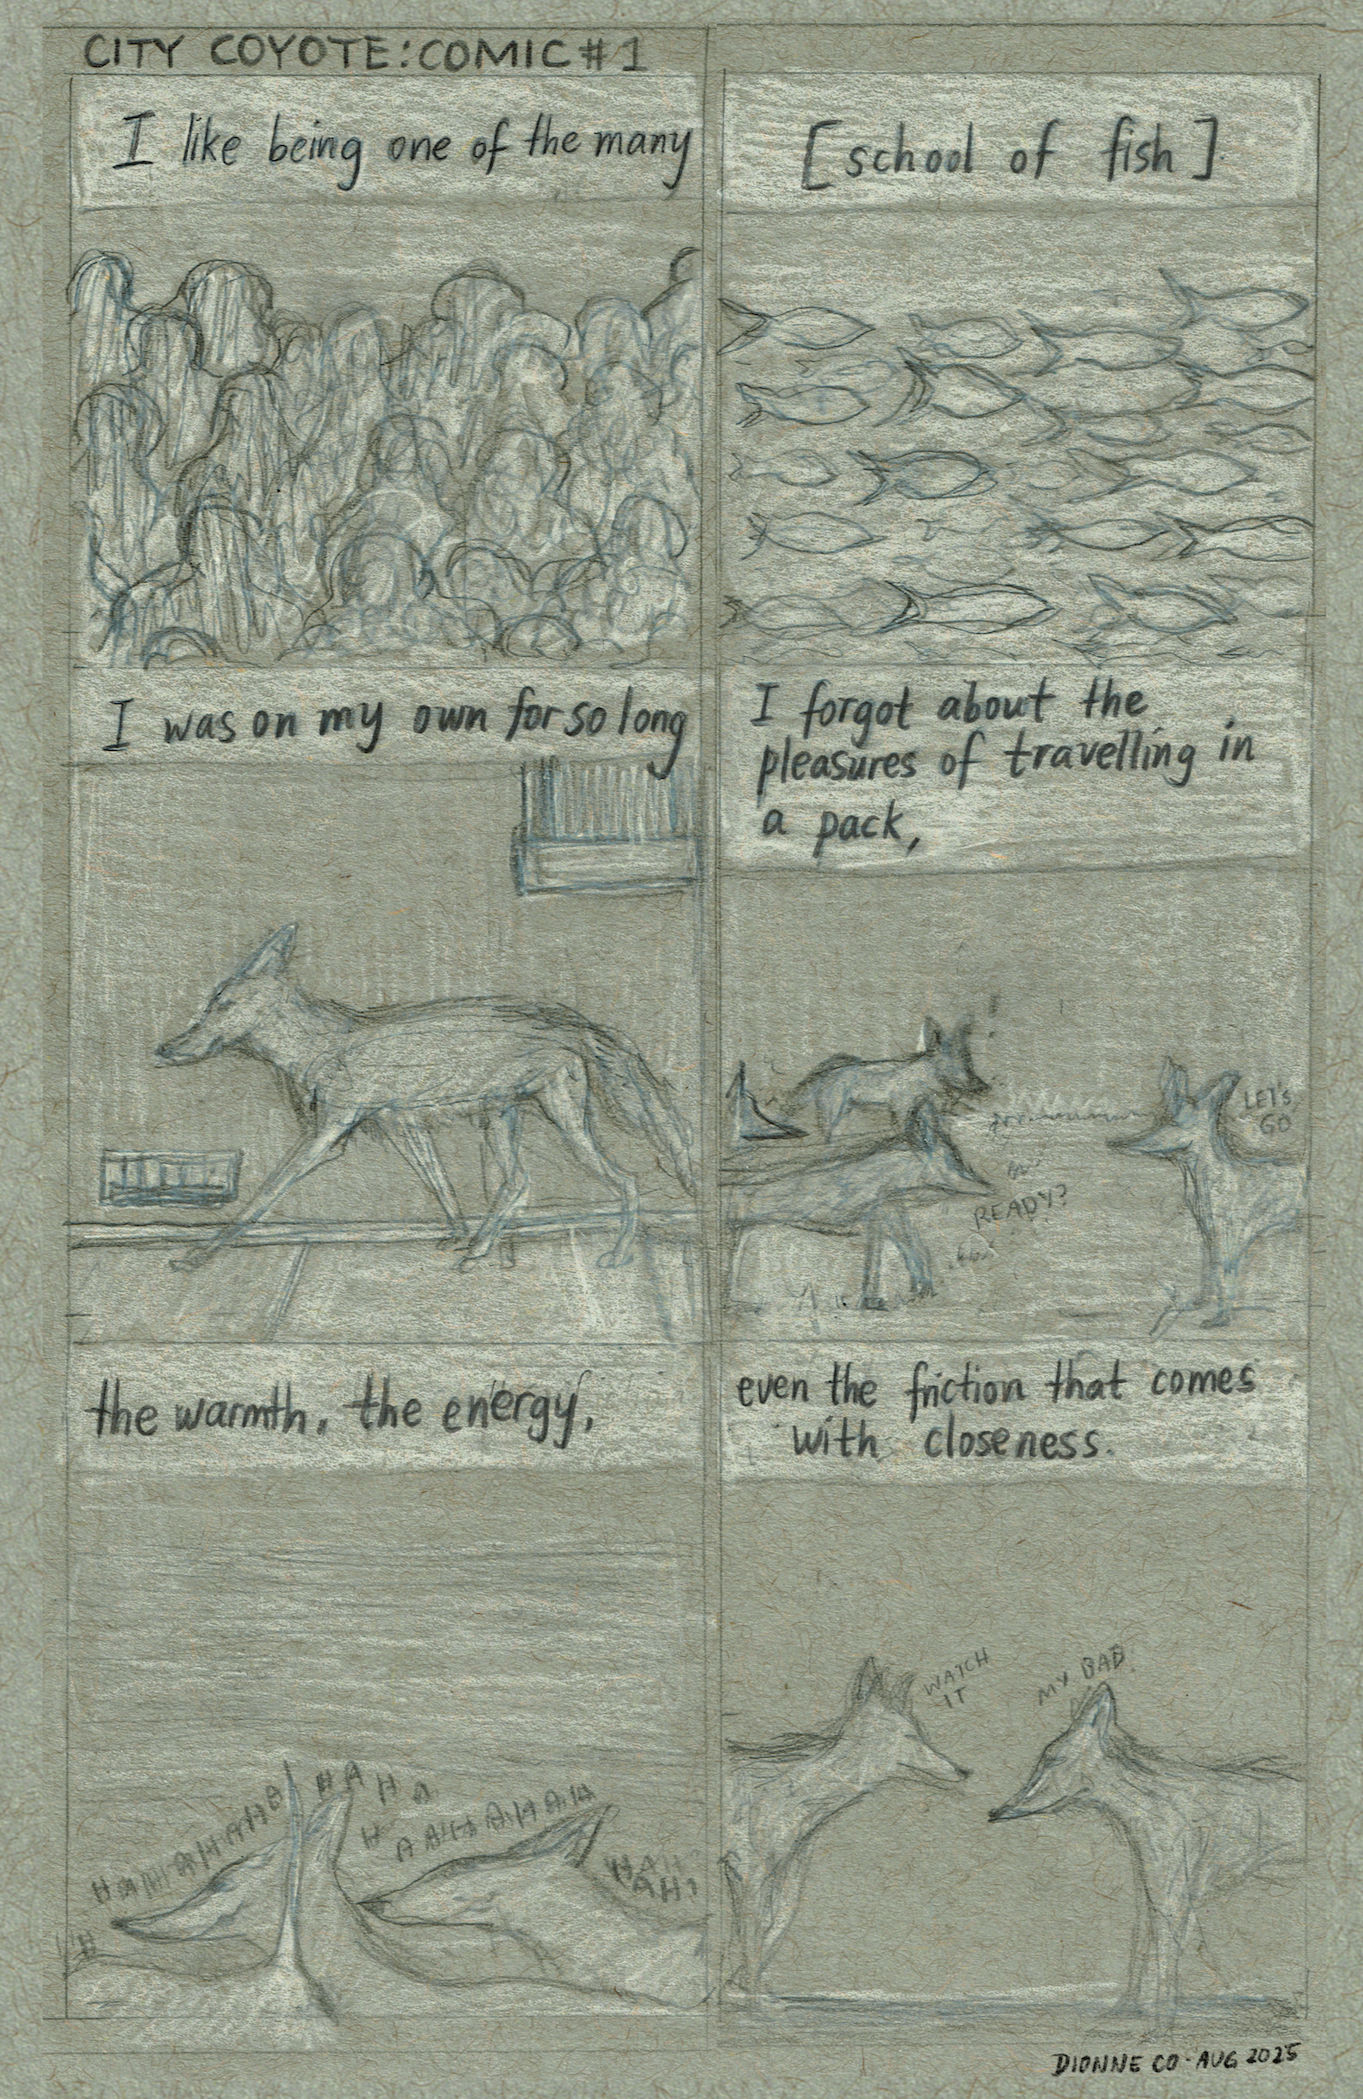 CITY COYOTE: COMIC #1
I like being one of the many
[school of fish]
I was on my own for so long
I forgot about the
pleasures of travelling in
a pack,
LET'S
GO
READY?
the warmth, the energy,
even the friction that comes
with closeness.
WATCH
IT
MY BAD
HAHAHAHAHA
HAHA
DIONNE CO · AUG 2025